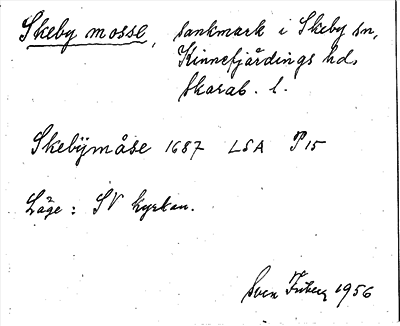 Skeby mosse, sankmark i Skeby sn,
Kinnefjärdings hd,
Skarab. l.
Skebÿmåse 1687 LSA P15
Läge: SV kyrkan.
Sven 1956